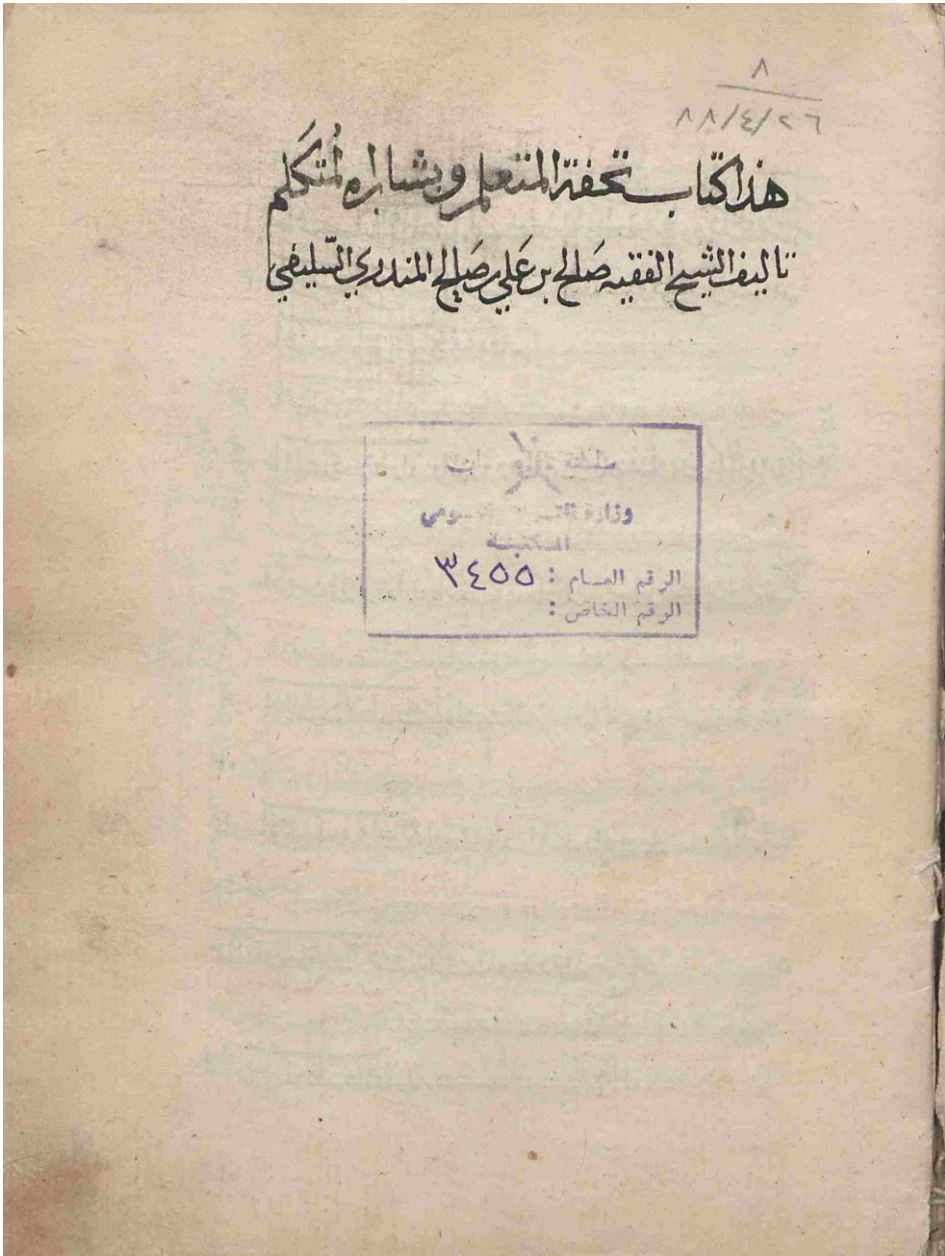 ٨
٨٨/٤/٢٦
هذا كتاب تحفة المتعلم وبشارة المتكلم
تاليف الشيخ الفقيه صالح بن علي بن صالح المنذري السليفي
سلطنة
وزارة القومي
المكتبة
الرقم العام : ٣٤٥٥
الرقم الخاص :